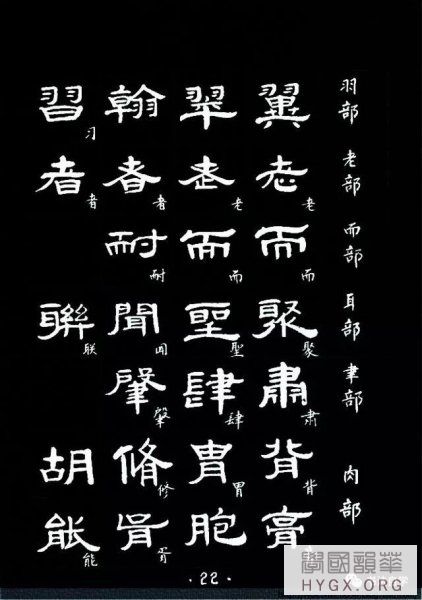 羽部 翼 翠 翰 習 习
老部 老 老 老 老 者 者 者 者
而部 而 而 而 而 耐 耐
耳部 聚 聚 聖 聖 聞 闻 聯 联
聿部 肅 肃 肆 肆 肇 肇
肉部 背 背 胃 胃 脩 修 胡
膏 胞 胥 胥 能 能
·22·
學國韻華
HYGX.ORG